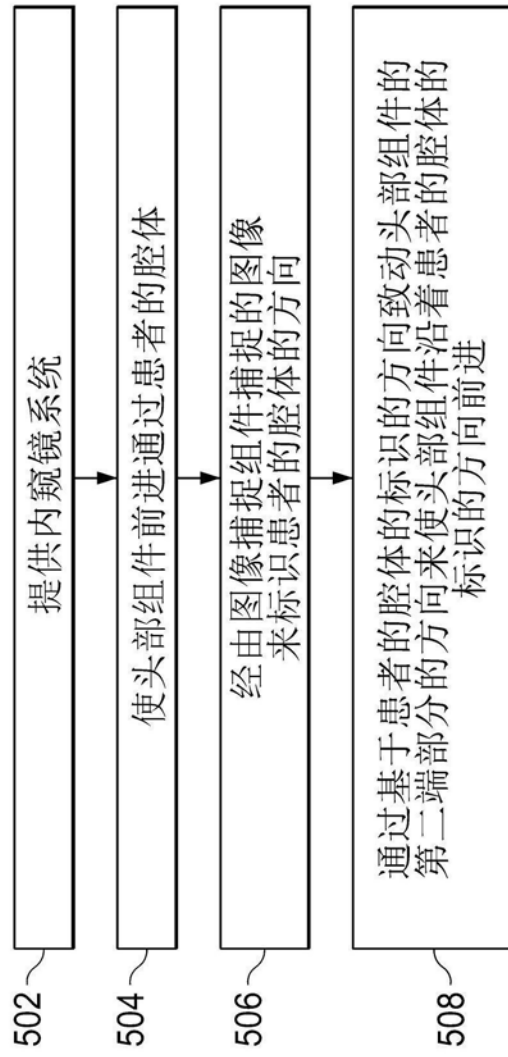 502
提供内窥镜系统
504
使头部组件前进通过患者的腔体
506
经由图像捕捉组件捕捉的图像
来标识患者的腔体的方向
508
通过基于患者的腔体的标识的方向致动头部组件的
第二端部分的方向来使头部组件沿着患者的腔体的
标识的方向前进